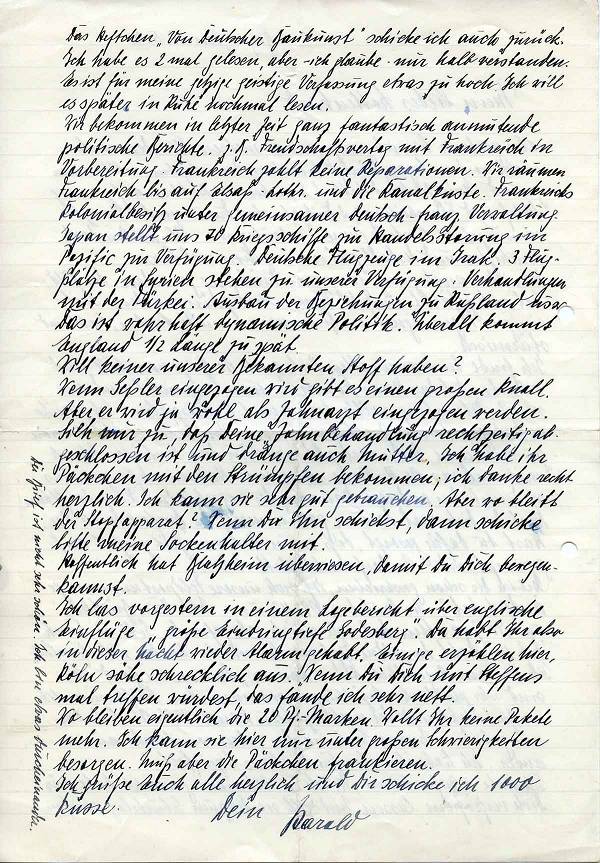 Das Heftchen „Von Deutscher Baukunst" schicke ich auch zurück.
Ich habe es 2 mal gelesen, aber - ich glaube - nur halb verstanden.
Es ist für meine jetzige geistige Verfassung etwas zu hoch. Ich will
es später in Ruhe nochmal lesen.
Wir bekommen in letzter Zeit ganz fantastisch anmutende
politische Berichte. z.B. Freundschaftsvertrag mit Frankreich in
Vorbereitung. Frankreich zahlt keine Reparationen. Wir räumen
Frankreich bis auf Elsaß-Lothr. und die Kanalküste. Frankreichs
Kolonialbesitz unter gemeinsamer deutsch-franz. Verwaltung.
Japan stellt uns 70 Kriegsschiffe zu Handelsstörung im
Pazific zur Verfügung. Deutsche Flugzeuge im Irak. 3 Flug-
plätze in Syrien stehen zu unserer Verfügung. Verhandlungen
mit der Türkei. Ausbau der Beziehungen zu Rußland usw.
Das ist wahrhaft dynamische Politik. Überall kommt
England 1/2 Länge zu spät.
Will keiner unserer Bekannten Stoff haben?
Wenn Seßler eingezogen wird gibt es einen großen Knall.
Aber er wird ja wohl als Zahnarzt eingezogen werden.
Sieh nur zu, daß Deine Zahnbehandlung rechtzeitig ab-
geschlossen ist und dränge auch Mutter. Ich habe ihr
Päckchen mit den Strümpfen bekommen; ich danke recht
herzlich. Ich kann sie sehr gut gebrauchen. Aber wo bleibt
der Stopfapparat? Wenn Du ihn schickst, dann schicke
bitte meine Sockenhalter mit.
Hoffentlich hat Blatzheim überwiesen, damit Du Dich bewegen
kannst.
Ich las vorgestern in einem Lagebericht über englische
Einflüge „größte Eindringtiefe Godesberg". Da habt Ihr also
in dieser Nacht wieder Alarm gehabt. Einige erzählen hier,
Köln sähe schrecklich aus. Wenn Du Dich mit Steffens
mal treffen würdest, das fände ich sehr nett.
Wo bleiben eigentlich die 20 Pf.-Marken. Wollt Ihr keine Pakete
mehr. Ich kann sie hier nur unter großen Schwierigkeiten
besorgen. Muß aber die Päckchen frankieren.
Ich grüße Euch alle herzlich und Dir schicke ich 1000
Küsse. Dein Harald
Der Brief ist nicht sehr schön. Ich bin etwas durcheinander.